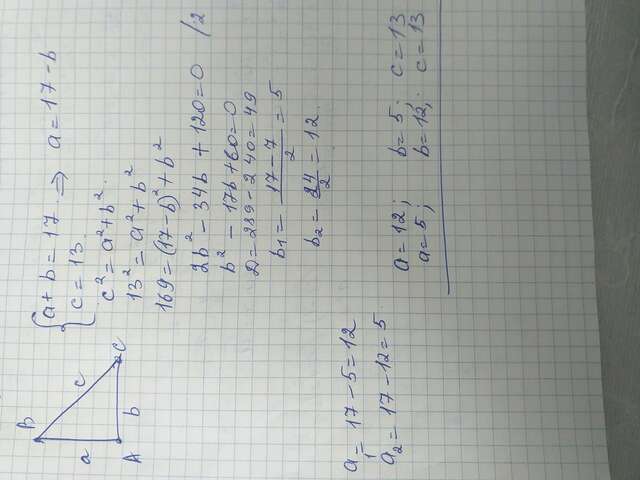 B
a c
A b C
{a + b = 17 ⇒ a = 17 - b
{c = 13
c² = a² + b².
13² = a² + b²
169 = (17 - b)² + b²
2b² - 34b + 120 = 0 /2
b² - 17b + 60 = 0
D = 289 - 240 = 49
b₁ = (17 - 7)/2 = 5
b₂ = 24/2 = 12.
a₁ = 17 - 5 = 12
a₂ = 17 - 12 = 5
a = 12; b = 5; c = 13
a = 5; b = 12; c = 13